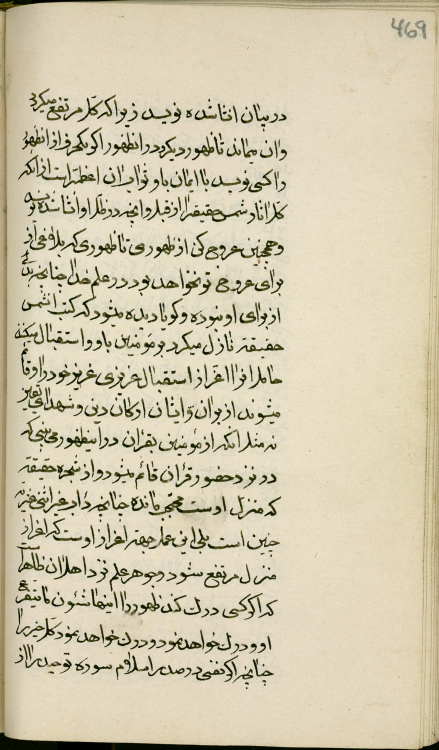 469
در بیان انشا شده نوید زیرا که کل مرتفع میگردد
وان میماند تا ظهور دیگر و در ان ظهور اگر یکحرف از ان ظهور
را کسی نوید با ایمان باو ثواب ان اعظم است از انکه
کل اثار شمس حقیقة را از قبل و انچه در ظل او انشا شده
و همچنین عروج کن از ظهوری تا ظهوری که
برای عروج تو نخواهد بود در علم خدا چنانچه
از برای او نبوده و گویا دیده میشود که کتب شمس
حقیقة نازل میگردد بر مؤمنین باو و استقبال میکنند
حامل انرا اعز از استقبال عزیزی عزیز خود را و
میشوند از بیان و ایشان ارکان دین و شهدای
نه مثل انکه از مؤمنین بقران در این ظهور می بینی که
در نزد حضور قران قائم میشود و از شجره حقیقة
که منزل اوست محتجب مانده چنانچه
چنین است بلی این عمل حقه اعزاز اوست که اعزاز
منزل مرتفع شود و جوهر علم نزد اهل ان
که اگر کسی درک کند ظهور را اینها شئون
او و درک خواهد نمود و درک خواهد نمود کل خیر را
چنانچه اگر نفسی در صدر اسلام سوره توحید را از